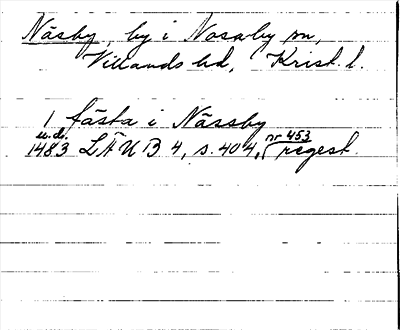 Näsby, by i Nosaby sn,
Villands hd, Krist. l.
1 fästa i Nässby
u.d. nr 453
1483 LÄUB 4, s. 404, regest.